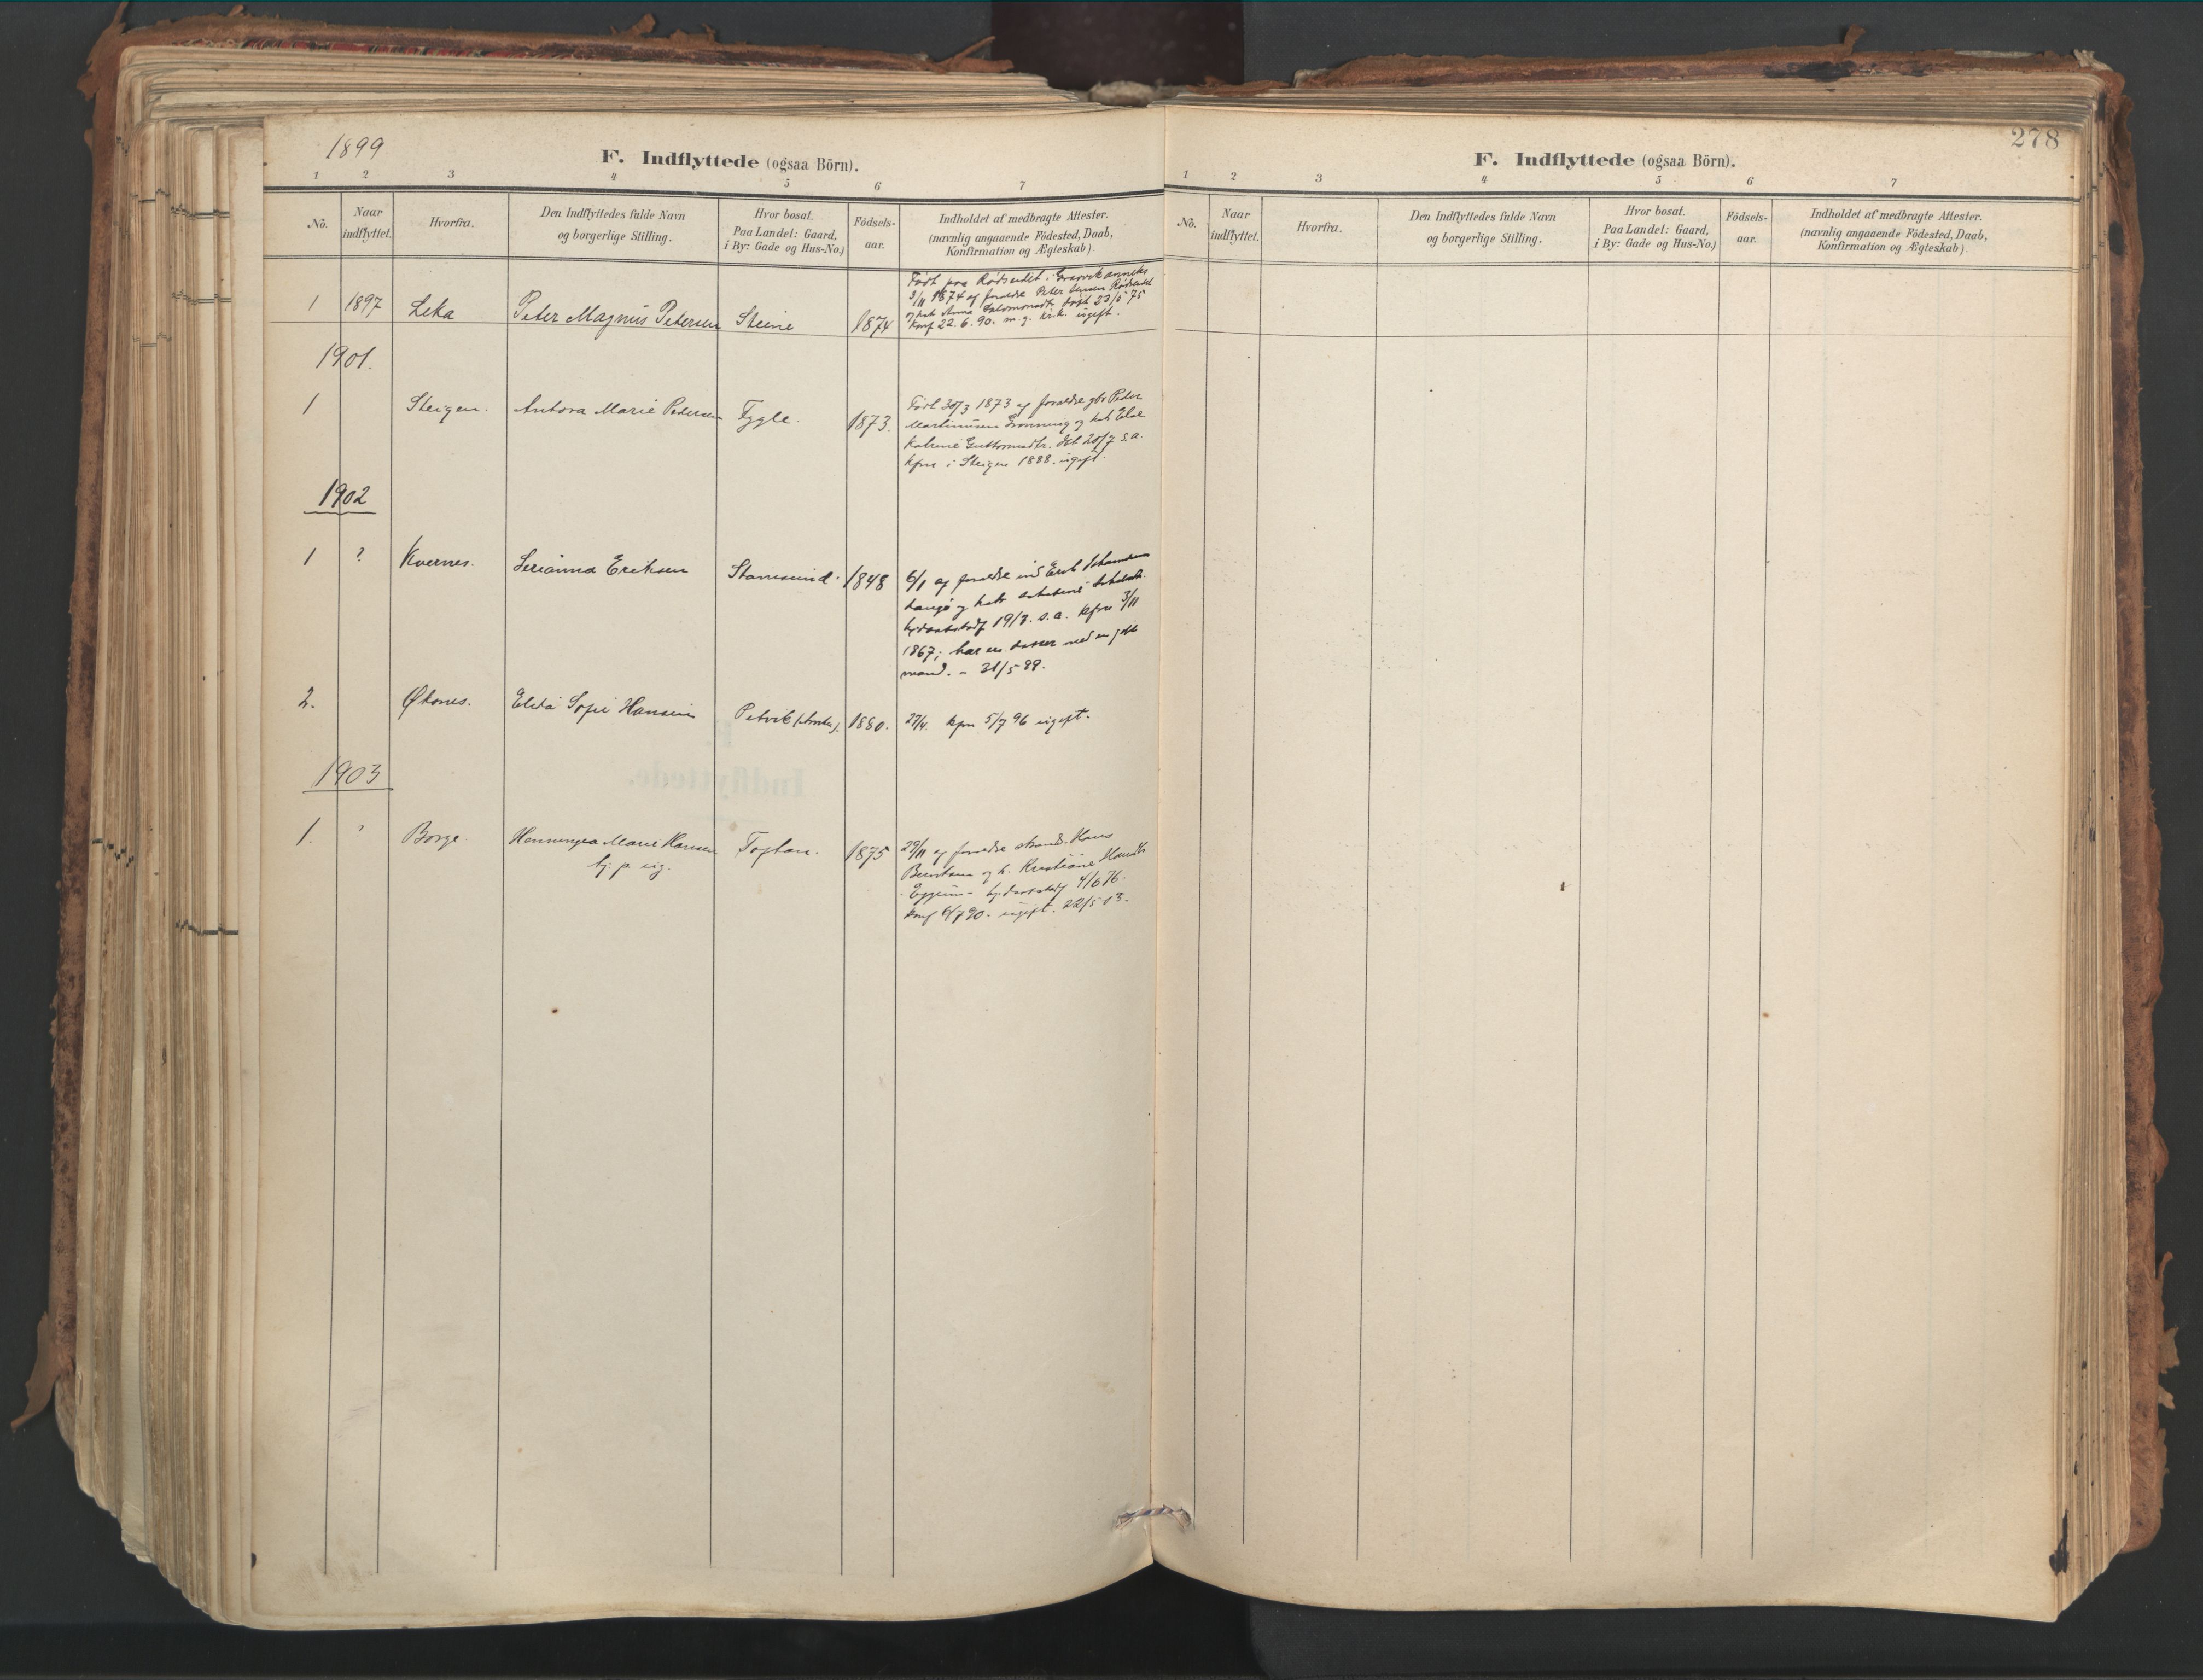 1899
F. Indflyttede (ogsaa Börn).
1 2 3 4 5 6 7
No.
Naar indflyttet.
Hvorfra.
Den Indflyttedes fulde Navn
og borgerlige Stilling.
Hvor bosat.
Paa Landet: Gaard,
i By: Gade og Hus-No.)
Födsels-
aar.
Indholdet af medbragte Attester.
(navnlig angaaende Födested, Daab,
Konfirmation og Ægteskab).
1 1897 Leka Peter Magnus Petersen Steine 1874
Født paa Rødseidet i Gravvik anneks
3/11 1874 af forældre Peter Jensen Rødseidet
og hst Anna Salomonsdtr døbt 23/5 75
konf 22. 6. 90. m. g. kr.k. ugift.
1901.
1 Steigen. Antora Marie Pedersen Fygle. 1873.
Født 30/3 1873 af forældre gbr Peder
Martinusen Grønning og hst Elde
Katrine Guttormsdtr. dbt 20/7 s.a.
kfm i Steigen 1888. ugift.
1902
1 ? Kvernes. Serianna Eriksen Stamsund. 1848
6/1 af forældre ind Erik Johannesen
19/3. s.a. kfm 3/11
1867; har en datter med en gift
mand. - 31/5 89.
2. Øksnes. Elida Sofie Hansen Petvik 1880. 27/4. kfm 5/7 96 ugift.
1903
1. ? Borge. Henningea Marie Hansen Toftan. 1875
tj. p. ug.
29/11 af forældre strands. Hans
Berntsen og h. Kristiane Hansdtr
Eggum - hj.daabstadf 4/6 76.
konf 6/7 90. ugift. 22/5 03.
278
F. Indflyttede (ogsaa Börn).
1 2 3 4 5 6 7
No.
Naar indflyttet.
Hvorfra.
Den Indflyttedes fulde Navn
og borgerlige Stilling.
Hvor bosat.
Paa Landet: Gaard,
i By: Gade og Hus-No.)
Födsels-
aar.
Indholdet af medbragte Attester.
(navnlig angaaende Födested, Daab,
Konfirmation og Ægteskab).